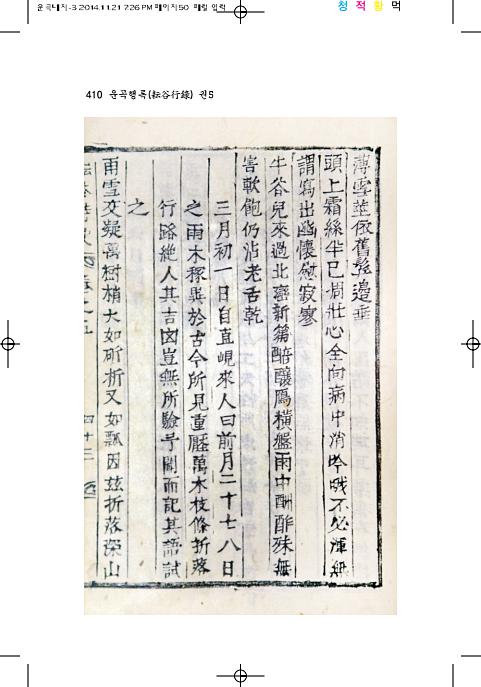 운곡내지-3 2014.11.21 7:26 PM 페이지50 매일 입력
청 적 황 먹
410 운곡행록(耘谷行錄) 권5
薄雪莖依舊鬂邊垂
頭上霜絲半已凋壯心全向病中消吟哦不必渾無
謂寫出幽懷慰寂寥
牛谷兒來過北窓新篘醅釀鴈橫盤雨中酬酢殊無
害軟飽仍沾老舌乾
三月初一日自直峴來人曰前月二十七八日
之雨木稼異於古今所見重壓萬木枝條折落
行路絶人其吉凶豈無所驗乎聞而記其語試
之
雨雪交凝萬樹梢大如斫析又如瓢因玆折落深山
四十三